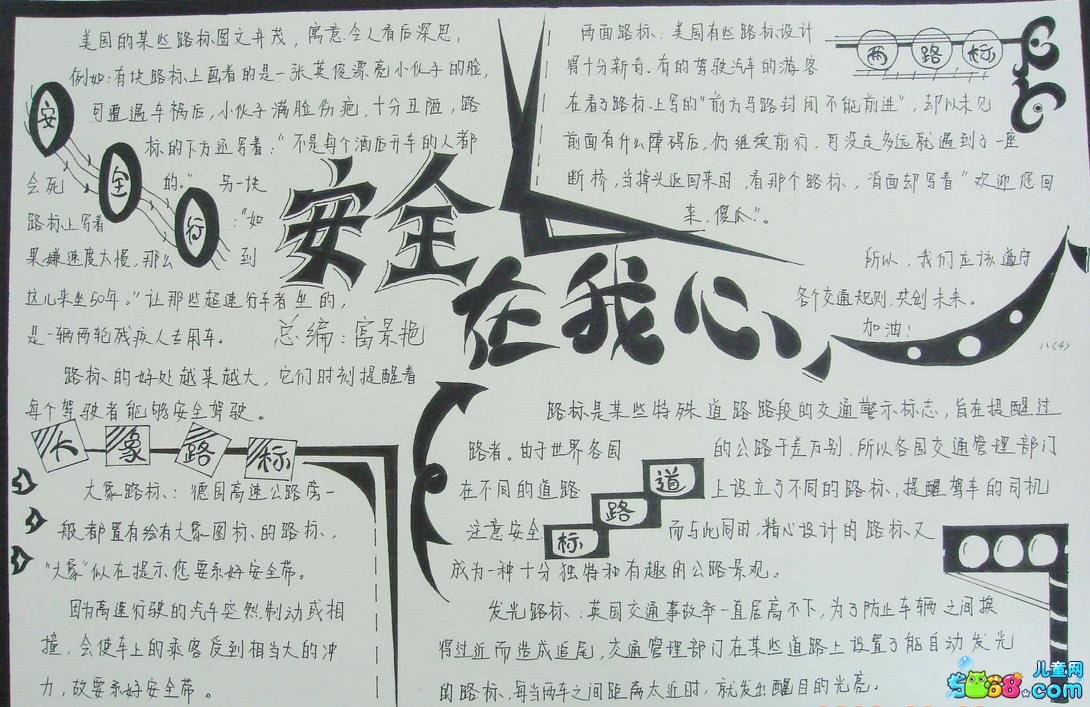 美国的某些路标图文并茂，寓意令人看后深思，
例如：有块路标上画着的是一张英俊漂亮小伙子的脸，
可遭遇车祸后，小伙子满脸伤疤，十分丑陋，路
标的下方还写着：“不是每个酒后开车的人都
会死的。” 另一块
路标上写着：“如
果嫌速度太慢，那么到
这儿来坐50年。”让那些超速行车者坐的，
是一辆两轮残疾人专用车。
路标的好处越来越大，它们时刻提醒着
每个驾驶者能够安全驾驶。
安全行
安全
在我心
总编：富景艳
两路标
两面路标：美国有些路标设计
得十分新奇。有的驾驶汽车的游客
在看了路标上写的“前方马路封闭不能前进”，却以未见
前面有什么障碍后，仍继续前行，可没走多远就遇到了一座
断桥，当掉头返回来时，看那个路标，背面却写着“欢迎您回
来，傻瓜”。
所以，我们应该遵守
各个交通规则，共创未来。
加油！
八〈4〉
大象路标
大象路标：德国高速公路旁一
般都置有绘有大象图标的路标，
“大象”似在提示您要系好安全带。
因为高速行驶的汽车突然制动或相
撞，会使车上的乘客受到相当大的冲
力，故要系好安全带。
道路标
路标是某些特殊道路路段的交通警示标志，旨在提醒过
路者。由于世界各国的公路千差万别，所以各国交通管理部门
在不同的道路上设立了不同的路标，提醒驾车的司机
注意安全而与此同时，精心设计的路标又
成为一种十分独特和有趣的公路景观。
发光路标：英国交通事故率一直居高不下，为了防止车辆之间挨
得过近而造成追尾，交通管理部门在某些道路上设置了能自动发光
的路标，每当两车之间距离太近时，就发出醒目的光亮。
儿童网
5068.com